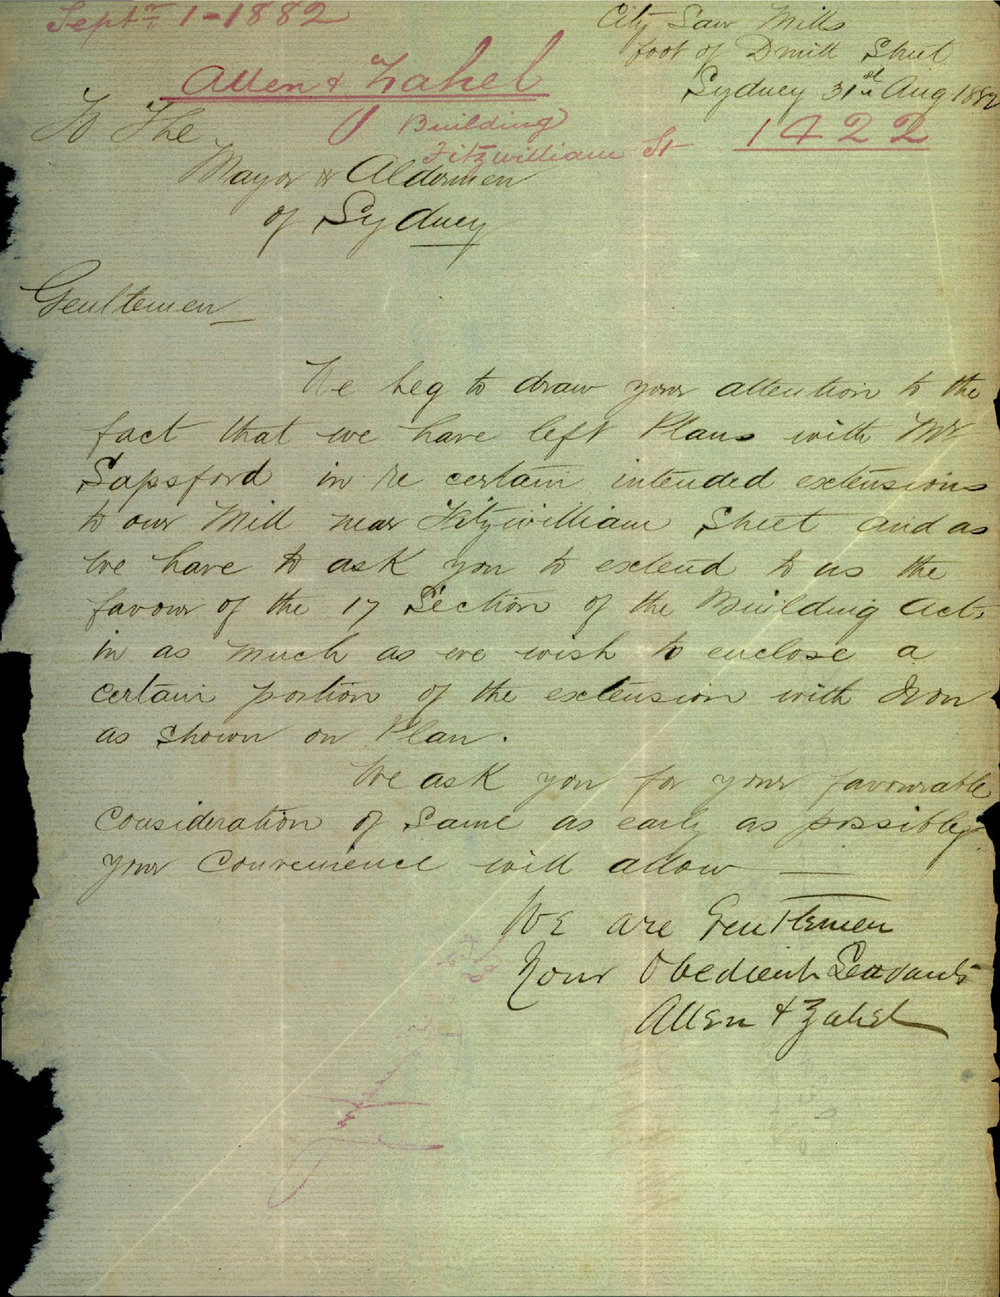 Sept 1-1882
City Saw Mills
foot of Druitt Street
Sydney 31st Aug 1882
Allen & Zahel
Building
Fitzwilliam St
1422
To The
Mayor & Aldermen
of Sydney
Gentlemen
We beg to draw your attention to the
fact that we have left Plans with Mr
Sapsford in re certain intended extensions
to our Mill near Fitzwilliam Street and as
We have to ask you to extend to us the
favour of the 17 Section of the Building Act,
in as much as we wish to enclose a
certain portion of the extension with Iron
as shown on Plan.
We ask you for your favourable
Consideration of Same as early as possibly
your Convenience will allow —
We are Gentlemen
Your Obedient Servants
Allen & Zahel